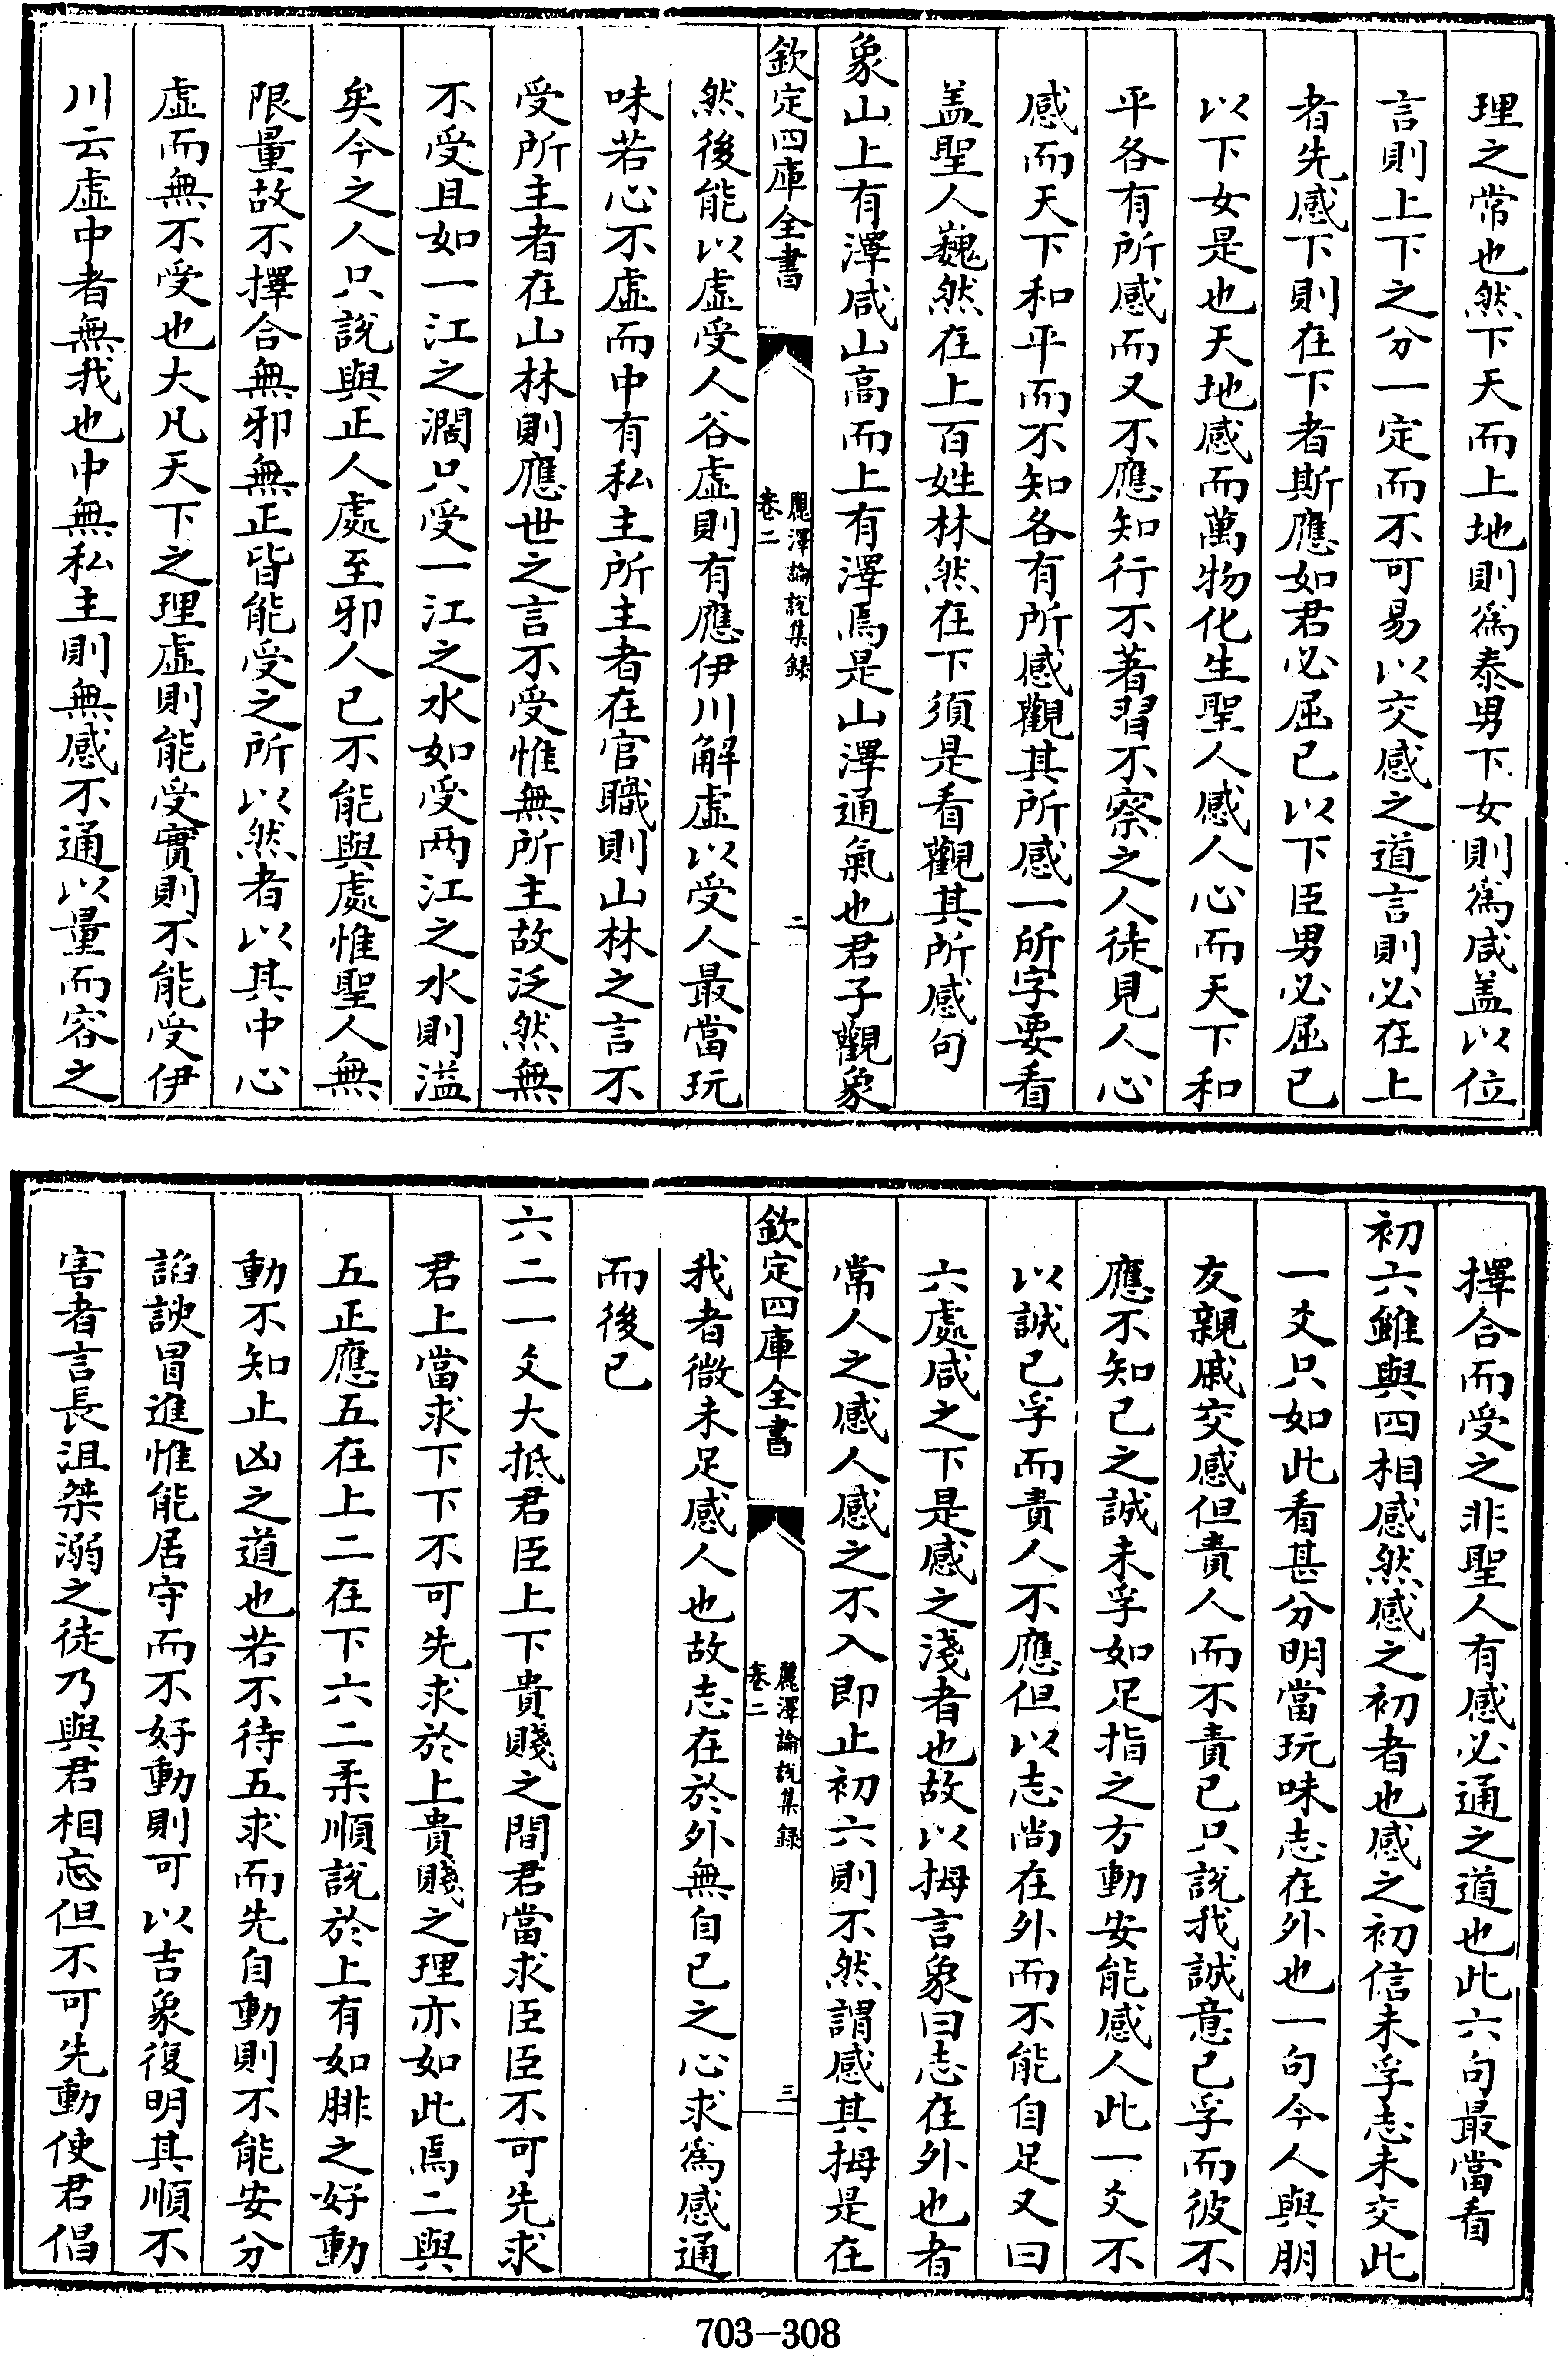 理之常也然下天而上地則為泰男下女則為咸盖以位
言則上下之分一定而不可易以交感之道言則必在上
者先感下則在下者斯應如君必屈已以下臣男必屈已
以下女是也天地感而萬物化生聖人感人心而天下和
平各有所感而又不應知行不著習不察之人徒見人心
感而天下和平而不知各有所感觀其所感一所字要看
盖聖人巍然在上百姓林然在下須是看觀其所感句
象山上有澤咸山高而上有澤焉是山澤通氣也君子觀象
欽定四庫全書
麗澤論說集録
卷二
二
然後能以虚受人谷虚則有應伊川解虚以受人最當玩
味若心不虚而中有私主所主者在官職則山林之言不
受所主者在山林則應世之言不受惟無所主故泛然無
不受且如一江之濶只受一江之水如受两江之水則溢
矣今之人只說與正人處至邪人已不能與處惟聖人無
限量故不擇合無邪無正皆能受之所以然者以其中心
虚而無不受也大凡天下之理虚則能受實則不能受伊
川云虚中者無我也中無私主則無感不通以量而容之
擇合而受之非聖人有感必通之道也此六句最當看
初六雖與四相感然感之初者也感之初信未孚志未交此
一爻只如此看甚分明當玩味志在外也一句今人與朋
友親戚交感但責人而不責已只說我誠意已孚而彼不
應不知已之誠未孚如足指之方動安能感人此一爻不
以誠已孚而責人不應但以志尚在外而不能自足又曰
六處咸之下是感之淺者也故以拇言象曰志在外也者
常人之感人感之不入即止初六則不然謂感其拇是在
欽定四庫全書
麗澤論說集録
卷二
三
我者微未足感人也故志在於外無自已之心求為感通
而後已
六二一爻大抵君臣上下貴賤之間君當求臣臣不可先求
君上當求下下不可先求於上貴賤之理亦如此焉二與
五正應五在上二在下六二柔順說於上有如腓之好動
動不知止凶之道也若不待五求而先自動則不能安分
諂諛冒進惟能居守而不好動則可以吉象復明其順不
害者言長沮桀溺之徒乃與君相忘但不可先動使君倡
703-308